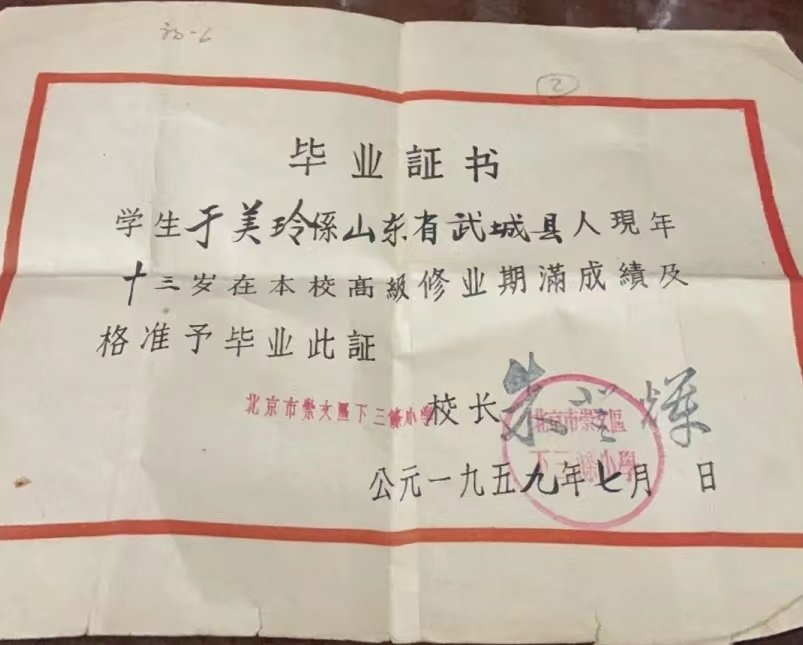 初-6
②
毕业証书
学生于美玲係山东省武城县人現年
十三岁在本校高級修业期滿成績及
格准予毕业此証
北京市崇文區下三條小學校长朱
北京市崇文區
下三條小學
公元一九五九年七月 日